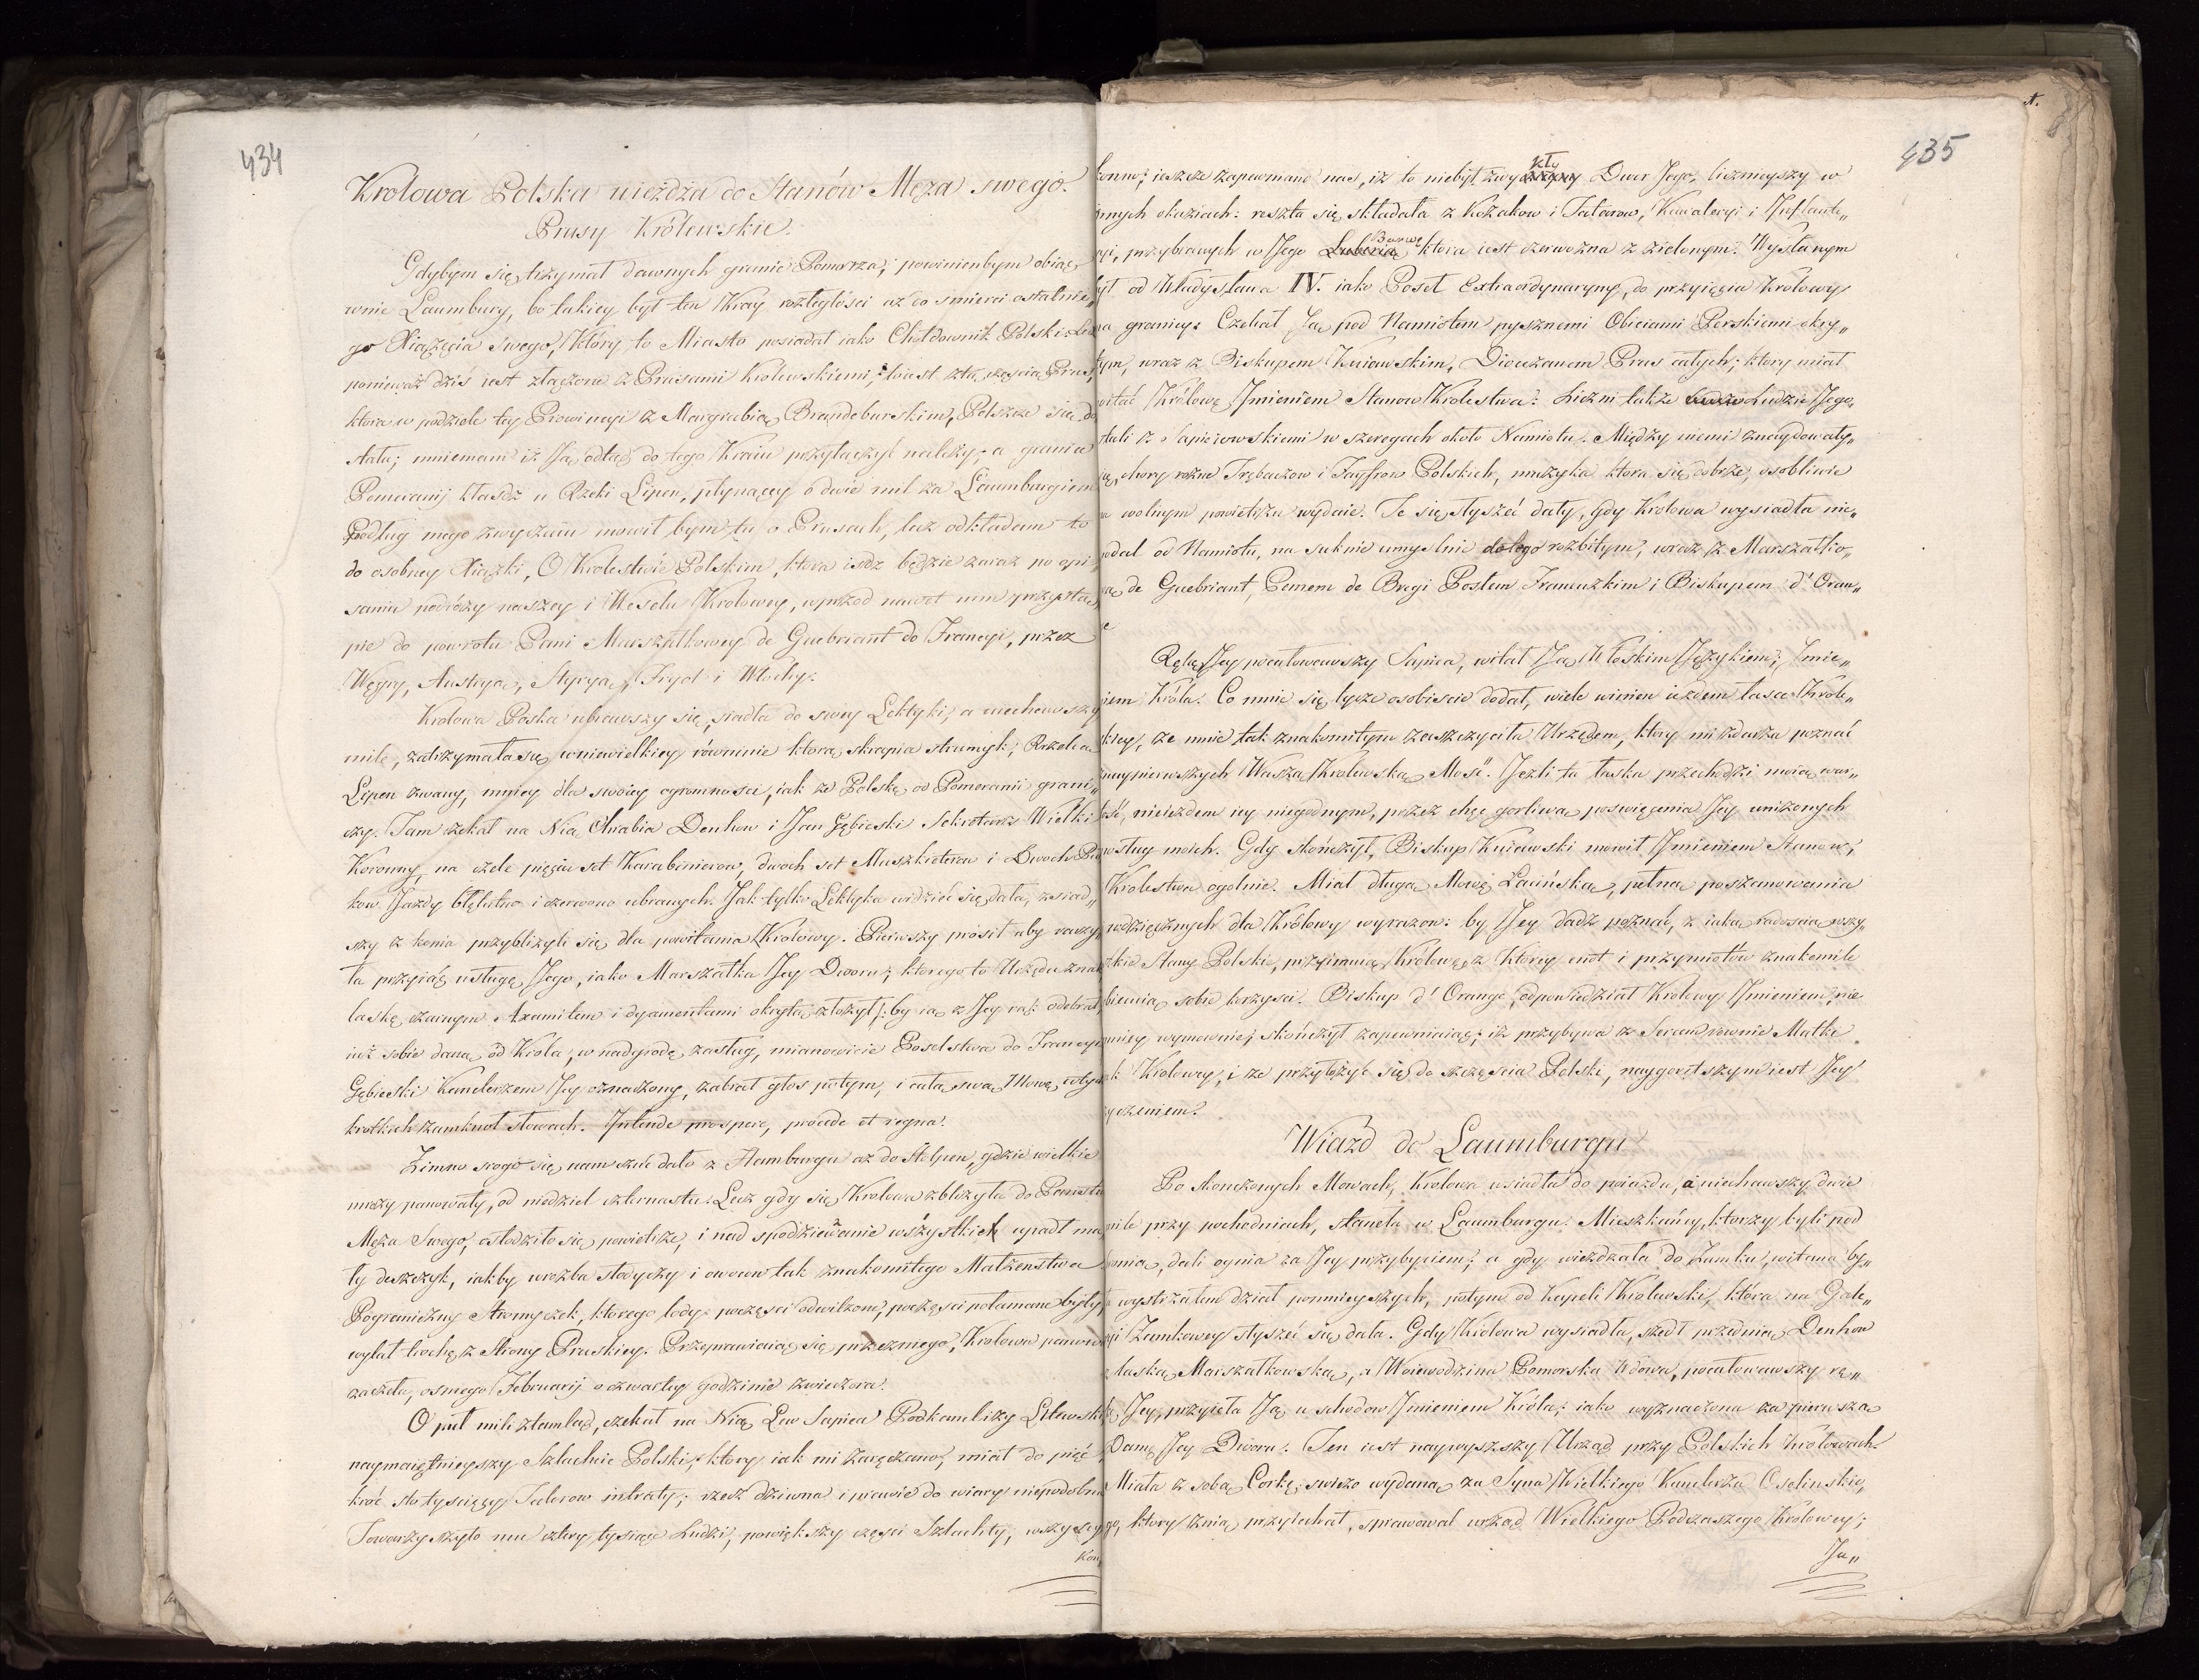 434
Krolowa Polska wieżdza do Stanów Męża swego.
Prusy Królewskie.
Gdybym się trzymał dawnych granic Pomorza, powinienbym obiąć
rownie Laumburg, bo takiey był ten Kray rozległości aż do smierci ostatnie„
go Xiążęcia swego, który to Miasto posiadał iako Chołdownik Polski: Lecz
ponieważ dziś iest złączone z Prusami Krolewskiemi, to iest z tą częscią Prus,
ktora w podziele tey Prowincyi z Margrabią Brandeburskim, Polszcze się do
stała; mniemam iż Ją odtąd do tego Kraiu przyłączyć należy, a granice
Pomeranij kłasdź u Rzeki Lipen, płynącey o dwie mil za Laumburgiem
Podług mego zwyczaiu mowił bym tu o Prusach, lecz odkładam to
do osobney Xiążki, O Krolestwie Polskim, ktora isdz będzie zaraz po opi„
saniu podróży naszey i Weselu Krolowey, wprzod nawet nim przystą„
pie do powrotu Pani Marszałkowey de Guebriant do Francyi, przez
Węgry, Austryą, Styryą, Tryol i Włochy.
Krolowa Poska ubrawszy się, siadła do swey Lektyki, a uiechawszy
milę, zatrzymała się w niewielkiey równinie ktorą skrapia strumyk, Rzeka
Lipen zwany, mniey dla swoiey ogromnosci, iak że Polskę od Pomeranii grani„
czy. Tam czekał na Nią Chrabia Denhow i Jan Gębicski Sekretarz Wielki
Koronny, na czele pięciu set Karabinierow, dwoch set Muszkieterow i Dwoch Puł
kow Jazdy błękitno i czerwono ubranych. Jak tylko Lektyka widzieć się dała, zsiad„
szy z konia przybliżyli się dla powitania Krolowy. Pierwszy prosił aby raczy„
ła przyiąć usługę Jego, iako Marszałka Jey Dworu; ktorego to Urzędu znak
laskę czarnym Axamitem i dyamentami okrytą złożył: by ią z Jey rąk odebrał
iuż sobie daną od Krola, w nadgrodę zasług, mianowicie Poselstwa do Francyi
Gębicski Kanclerzem Jey oznaczony, zabrał głos potym, i całą swą Mowę w tych
krotkich zamknoł słowach. Intende prospere, procede et regna.
Zimno srogo się nam czuć dało z Hamburgu aż do Stolpen, gdzie wielkie
mrozy panowały, od niedziel czternastu. Lecz gdy się Krolowa zbliżyła do Panstw
Męża Swego, osłodziło się powietrze, i nad spodziewanie wszystkich upadł ma„
ły deszczyk, iakby wrożba słodyczy i owocow tak znakomitego Małżenstwa
Pograniczny Strumyczek, ktorego lody poczęsci odwilżone, poczęsci połamane były,
wylał trochę z Strony Pruskiey. Przeprawiaiąc się przez niego, Krolowa panow
zaczeła, osmego Februarij o czwartey godzinie zwieczora.
O puł mili ztamtąd, czekał na Nią Lew Sapiea Podkanclirzy Litewski
naymaiętnieyszy Szlachcic Polski, ktory iak mi zaręczano, miał do pięć
kroć stotysciecy Talerow intraty; rzecz dziwna i prawie do wiary niepodobna
Towarzyszyło mu cztery tysiące Ludzi, powiększy częsci Szlachty, wszyscy
Kon„
435
konno; ieszcze zapewniano nas, iż to niebył zwykły Dwor Jego, licznieyszy w
innych okaziach: reszta się składała z Kozakow i Tatarow, Kawaleryi i Inflante„
ryi, przybranych w Jego Liberią Barwę ktora iest czerwona z zielonym. Wysłanym
był od Władysława IV. iako Poseł Extraordynaryny, do przyięcia Królowy
na granicy. Czekał Ją pod Namiotem pysznemi Obiciami Perskiemi okry„
tym, wraz z Biskupem Kuiawskim, Diecezanem Prus całych; ktory miał
witać Królowę Imieniem Stanow Krolestwa. Liczni także Ludzie Jego
stali z Sapieiowskiemi w szeregach około Namiotu. Między niemi znaydowały„
się chory rożne Trębaczow i Fayfrow Polskich, muzyka ktora się dobrze, osobliwie
na wolnym powietrzu wydaie. Te się słyszeć dały, gdy Krolowa wysiadła nie„
odal od Namiotu, na suknie umyslnie do tego rozbitym, wraz z Marszałko„
wą de Guebriant, Panem de Bregi Posłem Francuzkim i Biskupem d'Oran„
ge
Rękę Jey pocałowawszy Sapiea, witał Ją Włoskim Językiem, Imie„
niem Króla. Co mnie się tycze osobiscie dodał, wiele winien iezdem łasce Króle„
skiey, że mnie tak znakomitym zaszczyciła Urzędem, ktory mi zdarza poznać
z naypierwszych Waszą Krolewską Mość. Jeżli ta łaska przechodzi moią war„
tość, nieiezdem iey niegodnym, przez chęć gorliwą poswięcenia Jey uniżonych
usług moich. Gdy skończył, Biskup Kuiawski mowił Imieniem Stanow,
Krolestwa ogolnie. Miał długą Mowę Łacińską, pełną poszanowania
i wdzięcznych dla Królowy wyrazow: by Jey dadz poznać, z iaką radoscią wszy„
stkie Stany Polskie, przyimuią Krolowę z ktorey cnot i przymiotów znakomite
obiecuią sobie korzysci. Biskup d'Orange, odpowiedział Krolowy Imieniem, nie
mniey wymownie; skończył zapewniaiąc, iż przybywa z Sercem rownie Matki
iak Krolowey, i że przyłożyć się do szczęscia Polski, naygorętszym iest Jey
życzeniem.
Wiazd do Laumburgu
Po skonczonych Mowach, Krolowa wsiadła do poiazdu, a uiechawszy dwie
mile przy pochodniach, staneła w Laumburgu. Mieszkańcy, ktorzy byli pod
bronią, dali ognia za Jey przybyciem; a gdy wieżdzała do Zamku, witana by„
ła wystrzałem dział pomnieyszych, potym od Kapeli Krolewski, która na Gale„
ryi Zamkowey słyszeć się dała. Gdy Krolowa wysiadła, szedł przednią Denhow
z laską Marszałkowską, a Woiewodzina Pomorska Wdowa, pocałowawszy rę„
kę Jey, przyieła Ją u schodow Imieniem Króla; iako wyznaczona za pierwszą
Damę Jey Dworu. Ten iest naywyszszy Urząd przy Polskich Krolowach.
Miała z sobą Corkę, swieżo wydaną za Syna Wielkiego Kanclerza Osolinskie„
go, ktory z nią przyiechał, sprawował urząd Wielkiego Podczaszego Królowey;
Ja„